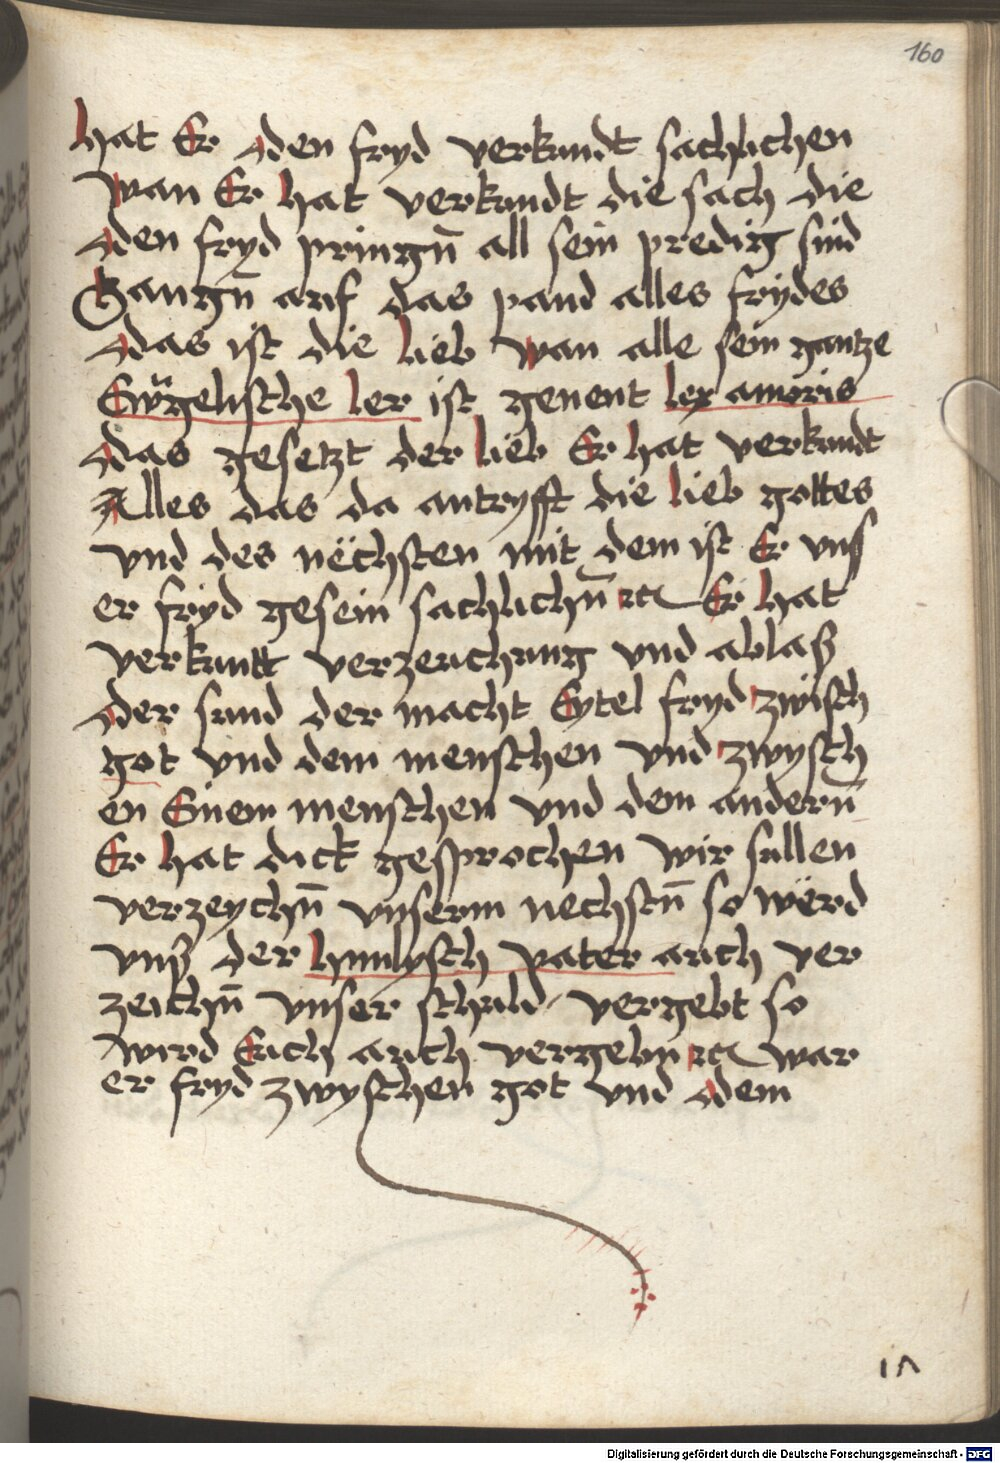 160
hat Er den fryd verkundt sachlichen
wan Er hat verkundt die sach die
den fryd pringn̄ all sein predig sind
Gangn̄ auf das pand alles frydes
das ist die lieb wan alle sein gantze
Ewgelische ler ist genent lex amoris
das gesetzt der lieb Er hat verkundt
Alles das da antryfft die lieb gottes
vnd des nëchsten mit dem ist Er vnß
er fryd gesein sachlichn̄ rc Er hat
verkuntt verzeichung vnd ablaß
der sund der macht Eytel fryd zwisch
got vnd dem menschen vnd zwysch
en Einem menschen vnd dem andern̄
Er hat dick gesprochen wir sullen
verzeychn̄ vnserm nechstn̄ so wërd
vnß der himlysch vater auch ver
zeichn̄ vnser schuld / vergebt so
wird Euch auch vergebn rc war
er fryd zwyschen got vnd dem
Digitalisierung gefördert durch die Deutsche Forschungsgemeinschaft - DFG